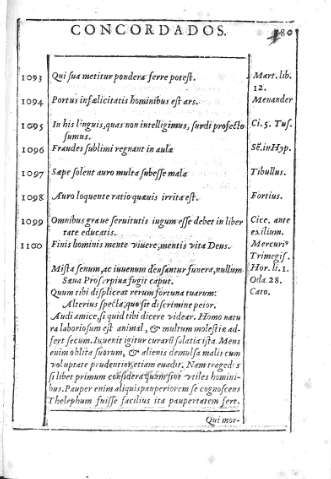 CONCORDADOS. 180
1093 Qui sua metitur pondera ferre potest. Mart. lib. 12.
1094 Portus infælicitatis hominibus est ars. Menander
1095 In his linguis, quas non intelligimus, surdi profecto sumus. Ci. 5. Tus.
1096 Fraudes sublimi regnant in aula Sẽ. in Hyp.
1097 Sæpe solent auro multa subesse mala Tibullus.
1098 Auro loquente ratio quauis irrita est. Fortius.
1099 Omnibus graue seruitutis iugum esse debet in liber
tate educatis. Cice. ante exilium.
1100 Finis hominis mente viuere, mentis vita Deus. Mercuriꝰ Trimegis.
Mista senum, ac iuuenum densantur funera, nullum Hor. li. 1.
Sæua Proserpina fugit caput. Oda 28.
Quum tibi displiceat rerum fortuna tuarum: Cato.
Alterius specta, quo sis discrimine peior.
Audi amice, si quid tibi dicere videar. Homo natu
ra laboriosum est animal, & multum molestiæ ad-
fert secum. Inuenit igitur curarũ solatia ista Mens
enim oblita suorum, & alienis demulsa malis cum
voluptate prudentior, etiam euadit. Nam tragedos
si libet primum considera quam sint vtiles homini-
bus. Pauper enim aliquis pauperiorem se cognoscens
Thelephum fuisse facilius ita paupertatem fert.
Qui mor-